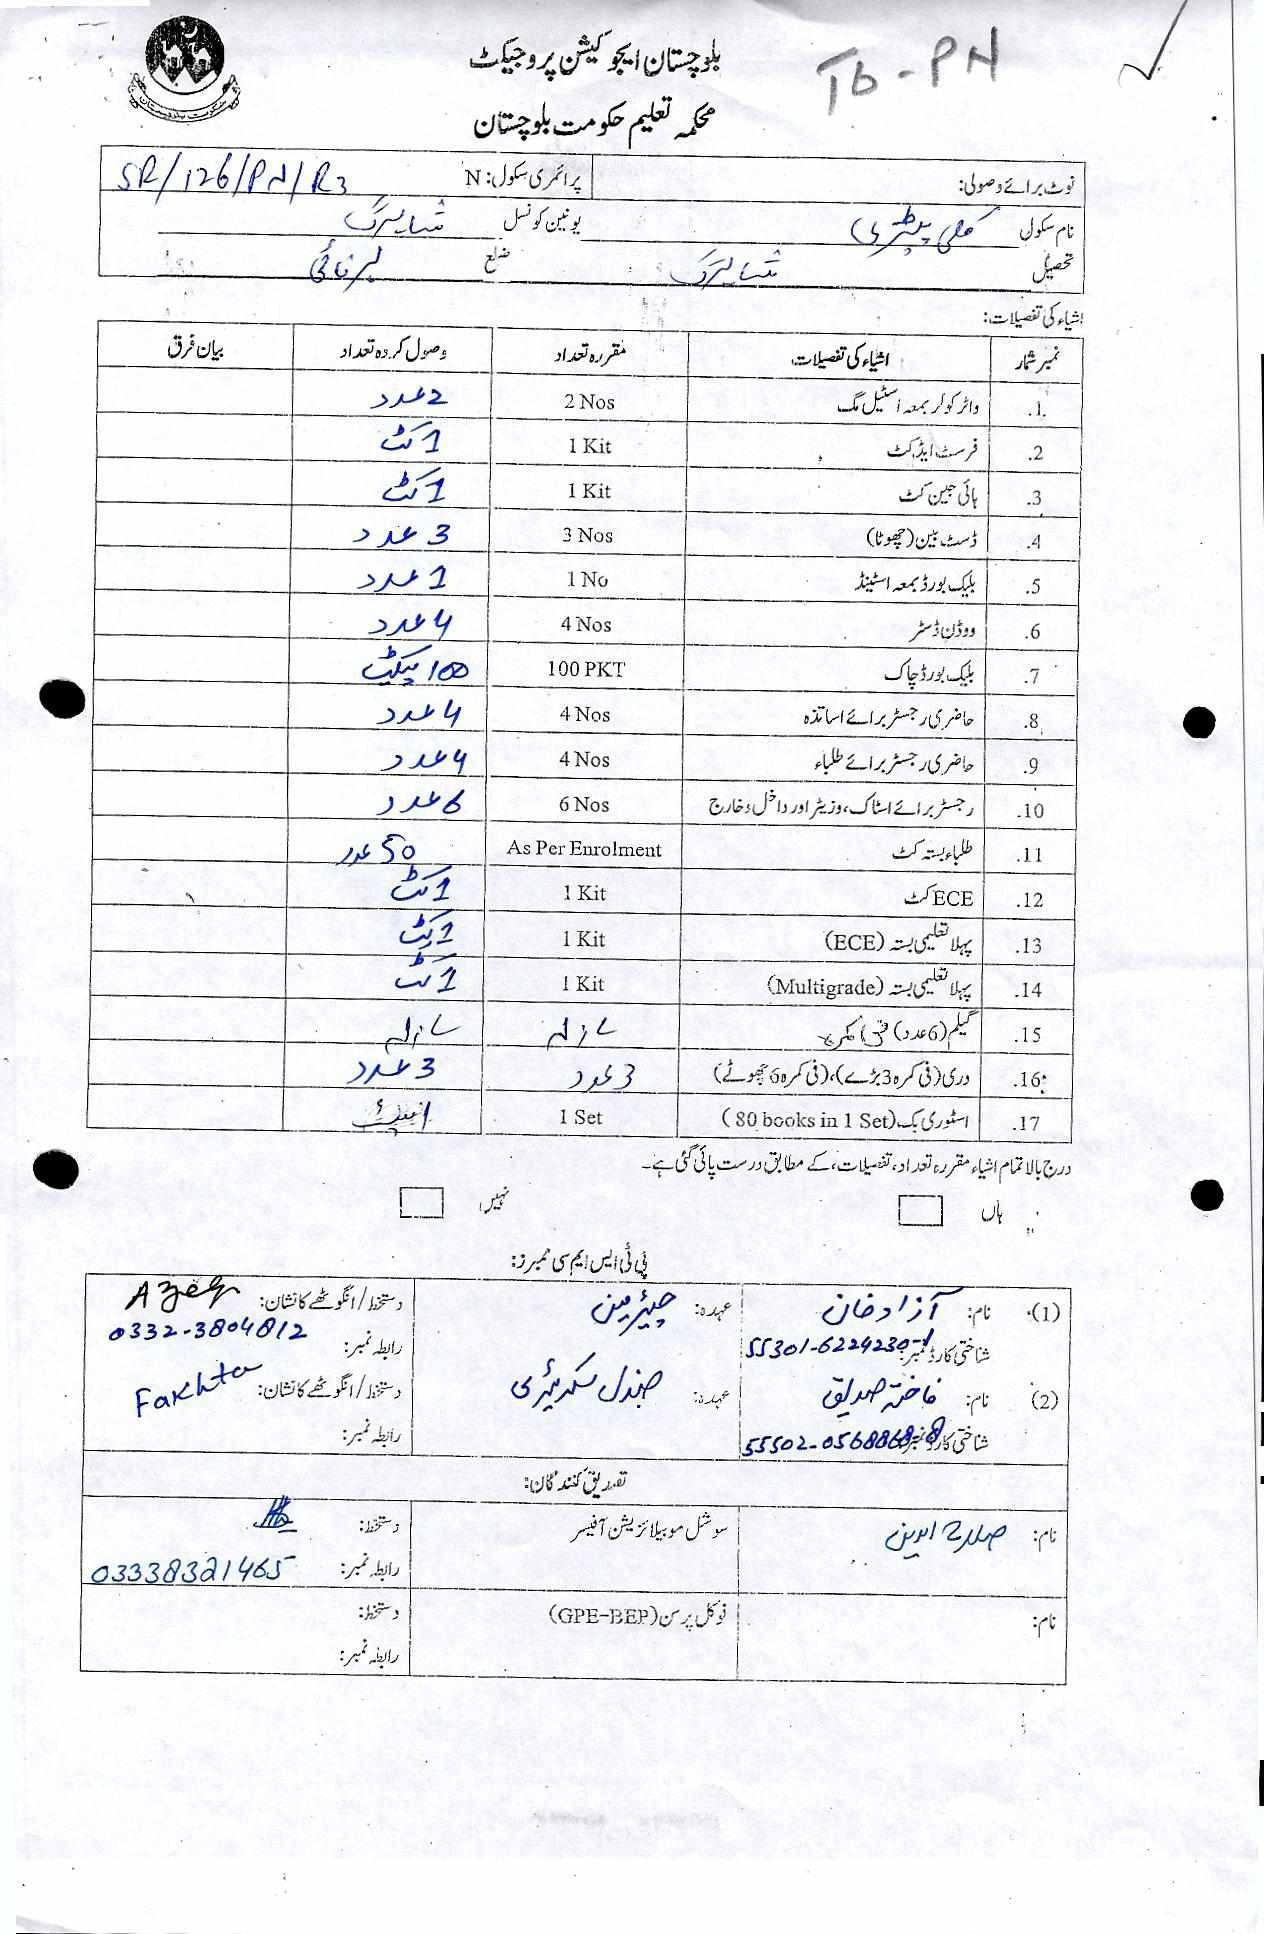 Tb-PN
بلوچستان ایجوکیشن پروجیکٹ
محکمہ تعلیم حکومت بلوچستان
نوٹ برائے وصولی: پرائمری سکول: N SR/126/PN/R3
نام سکول کلی یونین کونسل شاہرگ
تحصیل شاہرگ ضلع ہرنائی
اشیاء کی تفصیلات:
نمبر شمار اشیاء کی تفصیلات: مقررہ تعداد وصول کردہ تعداد بیان فرق
1. واٹر کولر بمعہ اسٹیل مگ 2 Nos 2 عدد
2. فرسٹ ایڈ کٹ 1 Kit 1 کٹ
3. ہائی جین کٹ 1 Kit 1 کٹ
4. ڈسٹ بین (چھوٹا) 3 Nos 3 عدد
5. بلیک بورڈ بمعہ اسٹینڈ 1 No 1 عدد
6. ووڈن ڈسٹر 4 Nos 4 عدد
7. بلیک بورڈ چاک 100 PKT 100 پیکٹ
8. حاضری رجسٹر برائے اساتذہ 4 Nos 4 عدد
9. حاضری رجسٹر برائے طلباء 4 Nos 4 عدد
10. رجسٹر برائے اسٹاک، وزیٹر اور داخل دخارج 6 Nos 6 عدد
11. طلباء بستہ کٹ As Per Enrolment 50 عدد
12. ECE کٹ 1 Kit 1 کٹ
13. پہلا تعلیمی بستہ (ECE) 1 Kit 1 کٹ
14. پہلا تعلیمی بستہ (Multigrade) 1 Kit 1 کٹ
15. گیلم (6 عدد) فی کمرہ
16. دری (فی کمرہ 3 بڑے)، (فی کمرہ 6 چھوٹے) 3 عدد 3 عدد
17. اسٹوری بک (80 books in 1 Set) 1 Set
درج بالا تمام اشیاء مقررہ تعداد، تفصیلات، کے مطابق درست پائی گئی ہے۔
ہاں نہیں
پی ٹی ایس ایم سی ممبرز:
(1) نام: آزاد خان عہدہ: چیئرمین دستخط/انگوٹھے کا نشان: Azeg
شناختی کارڈ نمبر: 55301-6224230-1 رابطہ نمبر: 0332-3804812
(2) نام: فاختہ صدیق عہدہ: جنرل سکریٹری دستخط/انگوٹھے کا نشان: Fakhta
شناختی کارڈ نمبر: 55502-0568868-8 رابطہ نمبر:
تصدیق کنندگان:
نام: صلاح الدین سوشل موبیلائزیشن آفیسر دستخط:
رابطہ نمبر: 03338321465
نام: فوکل پرسن (GPE-BEP) دستخط:
رابطہ نمبر: